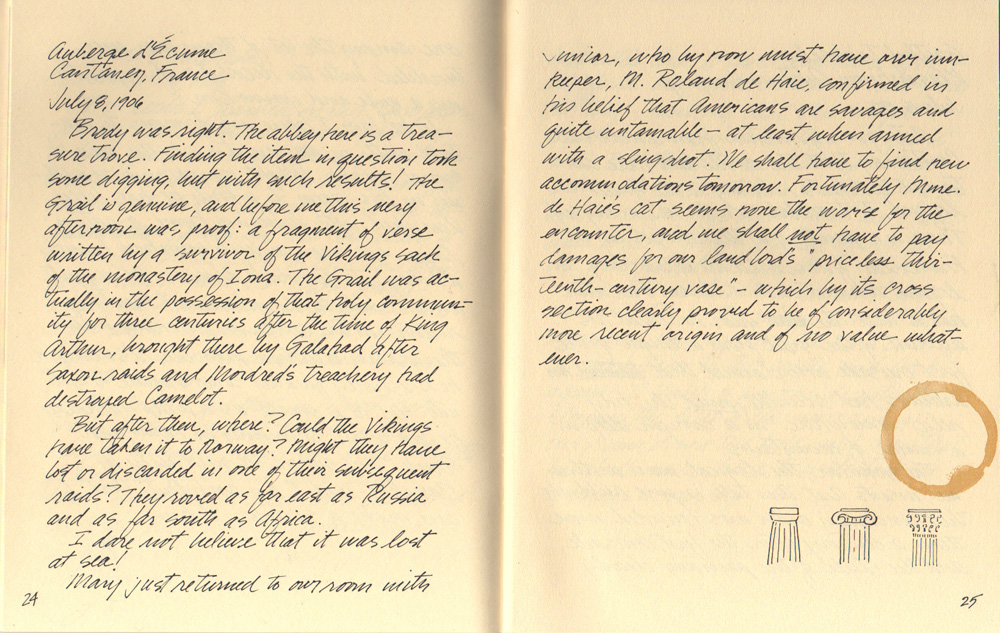 Auberge d'Écume
Cantaney, France
July 8, 1906
Brody was right. The abbey here is a trea-
sure trove. Finding the item in question took
some digging, but with such results! The
Grail is genuine, and before me this very
afternoon was proof: a fragment of verse
written by a survivor of the Vikings sack
of the monastery of Iona. The Grail was ac-
tually in the possession of that holy commun-
ity for three centuries after the time of King
Arthur, brought there by Galahad after
Saxon raids and Mordred's treachery had
destroyed Camelot.
But after then, where? Could the Vikings
have taken it to Norway? Might they have
lost or discarded in one of their subsequent
raids? They roved as far east as Russia
and as far south as Africa.
I dare not believe that it was lost
at sea!
Mary just returned to our room with
24
Junior, who by now must have our inn-
keeper, M. Roland de Haie, confirmed in
his belief that Americans are savages and
quite untamable – at least when armed
with a slingshot. We shall have to find new
accommodations tomorrow. Fortunately Mme.
de Haie's cat seems none the worse for the
encounter, and we shall not have to pay
damages for our landlord's "priceless thir-
teenth-century vase" – which by its cross
section clearly proved to be of considerably
more recent origin and of no value what-
ever.
25